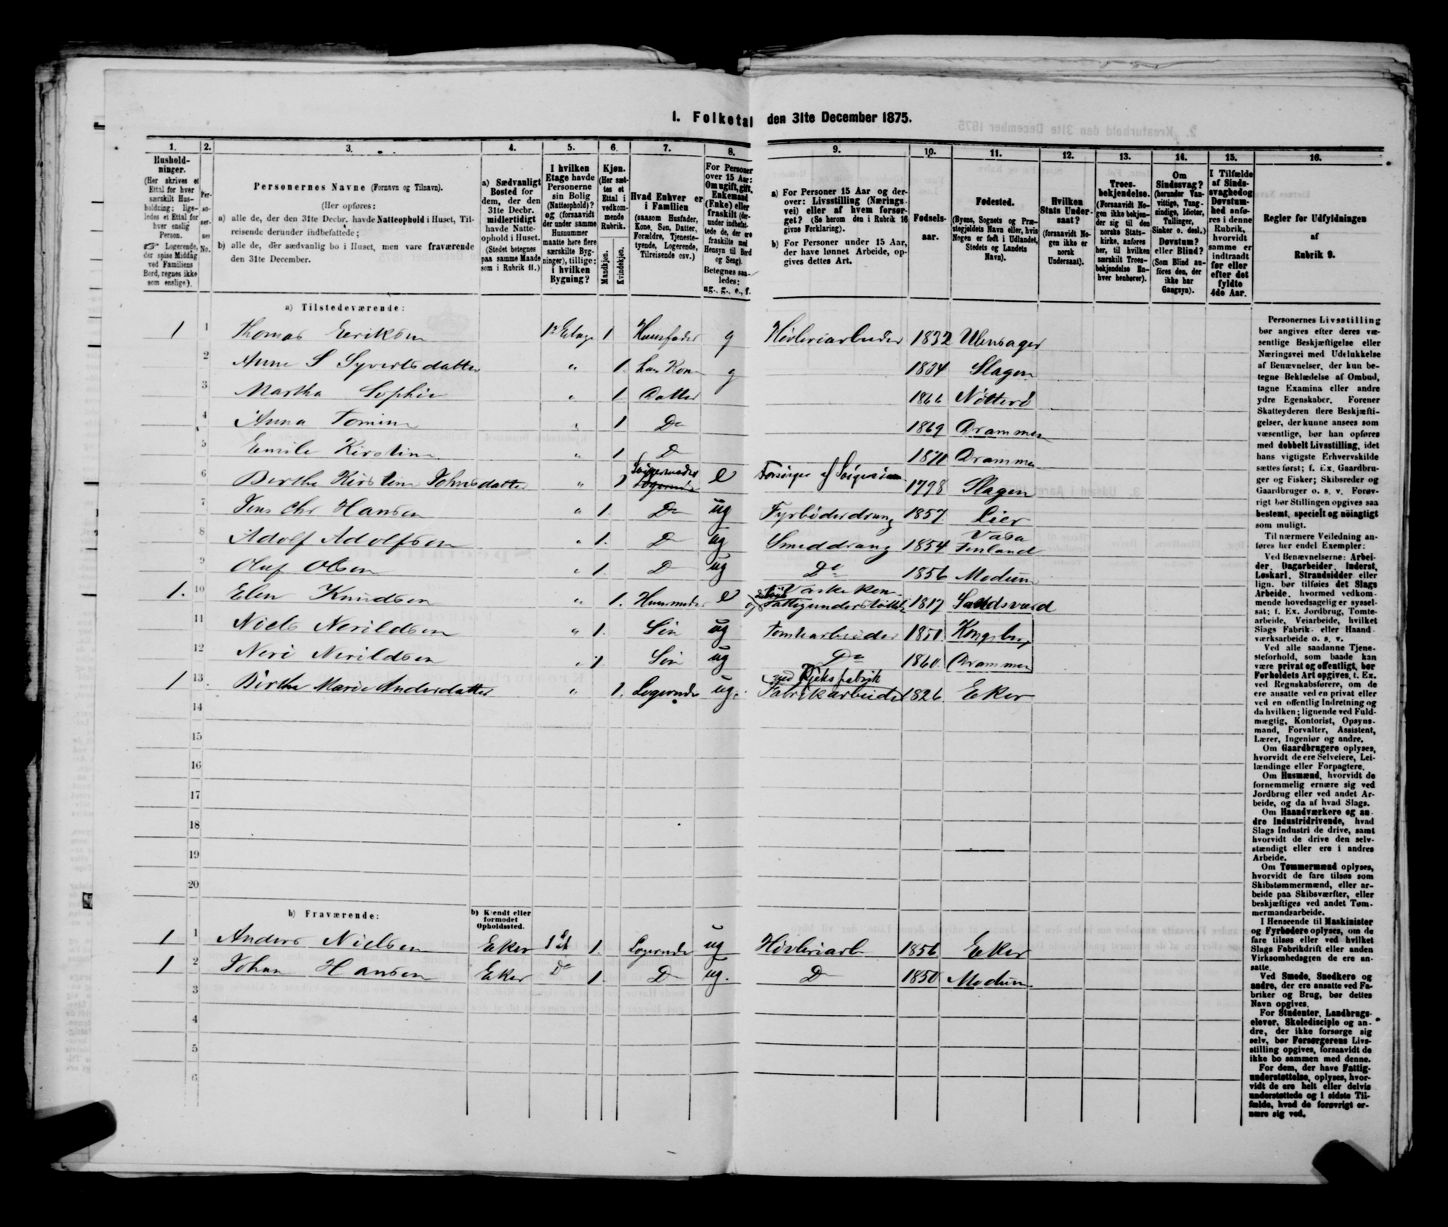 I. Folketal den 31te December 1875.
1. 2. 3. 4. 5. 6. 7. 8. 9. 10. 11. 12. 13. 14. 15. 16.
Husholdninger.
(Her skrives et
Ettal for hver
særskilt Husholdning;
ligeledes et Ettal for
hver enslig
Person.
Logerende,
der spise Middag
ved Familiens
Bord, regnes ikke
som enslige).
Personernes Navne (Fornavn og Tilnavn).
(Her opføres:
a) alle de, der den 31te Decbr. havde Natteophold i Huset, Tilreisende
derunder indbefattede;
b) alle de, der sædvanlig bo i Huset, men vare fraværende
den 31te December.
a) Sædvanligt
Bosted for
dem, der den
31te Decbr.
midlertidigt
havde Natteophold
i Huset.
(Stedet betegnes
paa samme Maade
som i Rubrik 11.)
I hvilken
Etage havde
Personerne
sin Bolig
(Natteophold)?
og (forsaavidt
der under samme
Husnummer
maatte høre flere
særskilte Bygninger),
tillige:
i hvilken
Bygning?
Kjøn.
(Her sættes
et
Ettal i
vedkommende
Rubrik.
Mandkjøn.
Kvindekjøn.
Hvad Enhver er
i Familien
(saasom Husfader,
Kone, Søn, Datter,
Forældre, Tjenestetyende,
Logerende,
Tilreisende osv.)
For Personer
over 15 Aar:
Om ugift, gift,
Enkemand
(Enke) eller
fraskilt
Betegnes saaledes:
ug., g., e., f.
a) For Personer 15 Aar og derover:
Livsstilling (Næringsvei)
eller af hvem forsørget?
(Se herom den i Rubrik 16
givne Forklaring).
b) For Personer under 15 Aar,
der have lønnet Arbeide, opgives
dettes Art.
Fødselsaar.
Fødested.
(Byens, Sognets og Præstegjeldets
Navn eller, hvis
Nogen er født i Udlandet,
Stedets og Landets
Navn).
Hvilken
Stats Undersaat?
(forsaavidt Nogen
ikke er
norsk
Undersaat).
Troesbekjendelse.
(Forsaavidt Nogen
ikke bekjender
sig til den
norske Statskirke,
anføres
her, til hvilken
særskilt Troesbekjendelse
Enhver
henhører).
Om
Sindssvag?
(herunder Vanvittige,
Tungsindige,
Idioter,
Tullinger,
Sinker o. desl.)
Døvstum?
eller Blind?
(Som Blind anføres
den, der
ikke har
Gangsyn).
I Tilfælde
af Sindssvaghed
og
Døvstumhed
anføres
her i denne
Rubrik,
hvorvidt
samme er
indtraadt
før eller
efter det
fyldte
4de Aar.
Regler for Udfyldningen
af
Rubrik 9.
a) Tilstedeværende:
1 1 Thomas Eriksen 1ste Etage 1 Huusfader g Høvleriarbeider 1832 Ulensager
2 Anne S Syvertsdatter " 1 hans Kone g 1834 Slagen
3 Martha Sophie " 1 Datter 1866 Nøtterø
4 Anna Tomine " 1 Do 1869 Drammen
5 Emile Kirstine " 1 D 1870 Drammen
6 Berthe Kirstine Johnsdatter " 1 e 1798 Slagen
7 Jens Chr Hansen " 1 Do ug Fyrbøderdreng 1857 Lier
8 Adolf Adolfsen " 1. D ug Smeddreng 1854 Vasa Finland
9 Oluf Olsen " 1 D ug Do 1856 Modum
1. 10 Elen Knudsen " 1. Huusmoder e Vaskekone og Fattigunderstøttet 1817 Sandsværd
11 Niels Nerildsen " 1. Søn ug Tomtearbeider 1851. Kongsberg
12 Neri Nerildsen " 1 Søn ug Do 1860. Drammen
1 13 Birthe Marie Andersdatter " 1. Logerende ug. Fabrikarbeider ved Kjeksfabrik 1826. Eker
14
15
16
17
18
19
20
b) Fraværende:
b) Kjendt eller
formodet
Opholdssted.
1 1 Anders Nielsen Eker 1 Et 1. Logerende ug Høvleriarb 1856 Eker
1 2 Johan Hansen Eker Do 1. D ug. D 1850 Modum
3
4
5
6
Personernes Livsstilling
bør angives efter deres væsentlige
Beskjæftigelse eller
Næringsvei med Udelukkelse
af Benævnelser, der kun betegne
Beklædelse af Ombud,
tagne Examina eller andre
ydre Egenskaber. Forener
Skatteyderen flere Beskjæftigelser,
der kunne ansees som
væsentlige, bør han opføres
med dobbelt Livsstilling, idet
hans vigtigste Erhvervskilde
sættes først; f. Ex. Gaardbruger
og Fisker; Skibsreder og
Gaardbruger o. s. v. Forøvrigt
bør Stillingen opgives saa
bestemt, specielt og nøiagtigt
som muligt.
Til nærmere Veiledning anføres
her endel Exempler:
Ved Benævnelserne: Arbeider,
Dagarbeider, Inderst,
Løskarl, Strandsidder eller
lign. bør tilføies det Slags
Arbeide, hvormed vedkommende
hovedsagelig er sysselsat;
f. Ex. Jordbrug, Tomtearbeide,
Veiarbeide, hvilket
Slags Fabrik- eller Haandværksarbeide
o. s. v.
Ved alle saadanne Tjenesteforhold,
som baade kan
være privat og offentligt, bør
Forholdets Art opgives, t. Ex.
ved Regnskabsførere, om de
ere ansatte ved en privat eller
ved en offentlig Indretning og
da hvilken; lignende ved Fuldmægtig,
Kontorist, Opsynsmand,
Forvalter, Assistent,
Lærer, Ingeniør og andre.
Om Gaardbrugere oplyses,
hvorvidt de ere Selveiere, Leilændinge
eller Forpagtere.
Om Husmænd, hvorvidt de
fornemmelig ernære sig ved
Jordbrug eller ved andet Arbeide,
og da af hvad Slags.
Om Haandværkere og andre
Industridrivende, hvad
Slags Industri de drive, samt
hvorvidt de drive den selvstændigt
eller ere i andres
Arbeide.
Om Tømmermænd oplyses,
hvorvidt de fare tilsøs som
Skibstømmermænd, eller arbeide
paa Skibsværfter, eller
beskjæftiges ved andet Tømmermandsarbeide.
I Henseende til Maskinister
og Fyrbødere oplyses, om de
fare tilsøs eller ved hvilket
Slags Fabrikdrift eller anden
Virksomhed de ere ansatte.
Ved Smede, Snedkere og
andre, der ere ansatte ved Fabriker
og Brug, bør dettes
Navn opgives.
For Studenter, Landbrugselever,
Skoledisciple og andre,
der ikke forsørge sig
selv, bør Forsørgerens Livsstilling
opgives, forsaavidt de
ikke bo sammen med denne.
For dem, der have Fattigunderstøttelse,
oplyses, hvorvidt
de ere helt eller delvis
understøttede og i sidste Tilfælde,
hvad de forøvrigt ernære
sig ved.